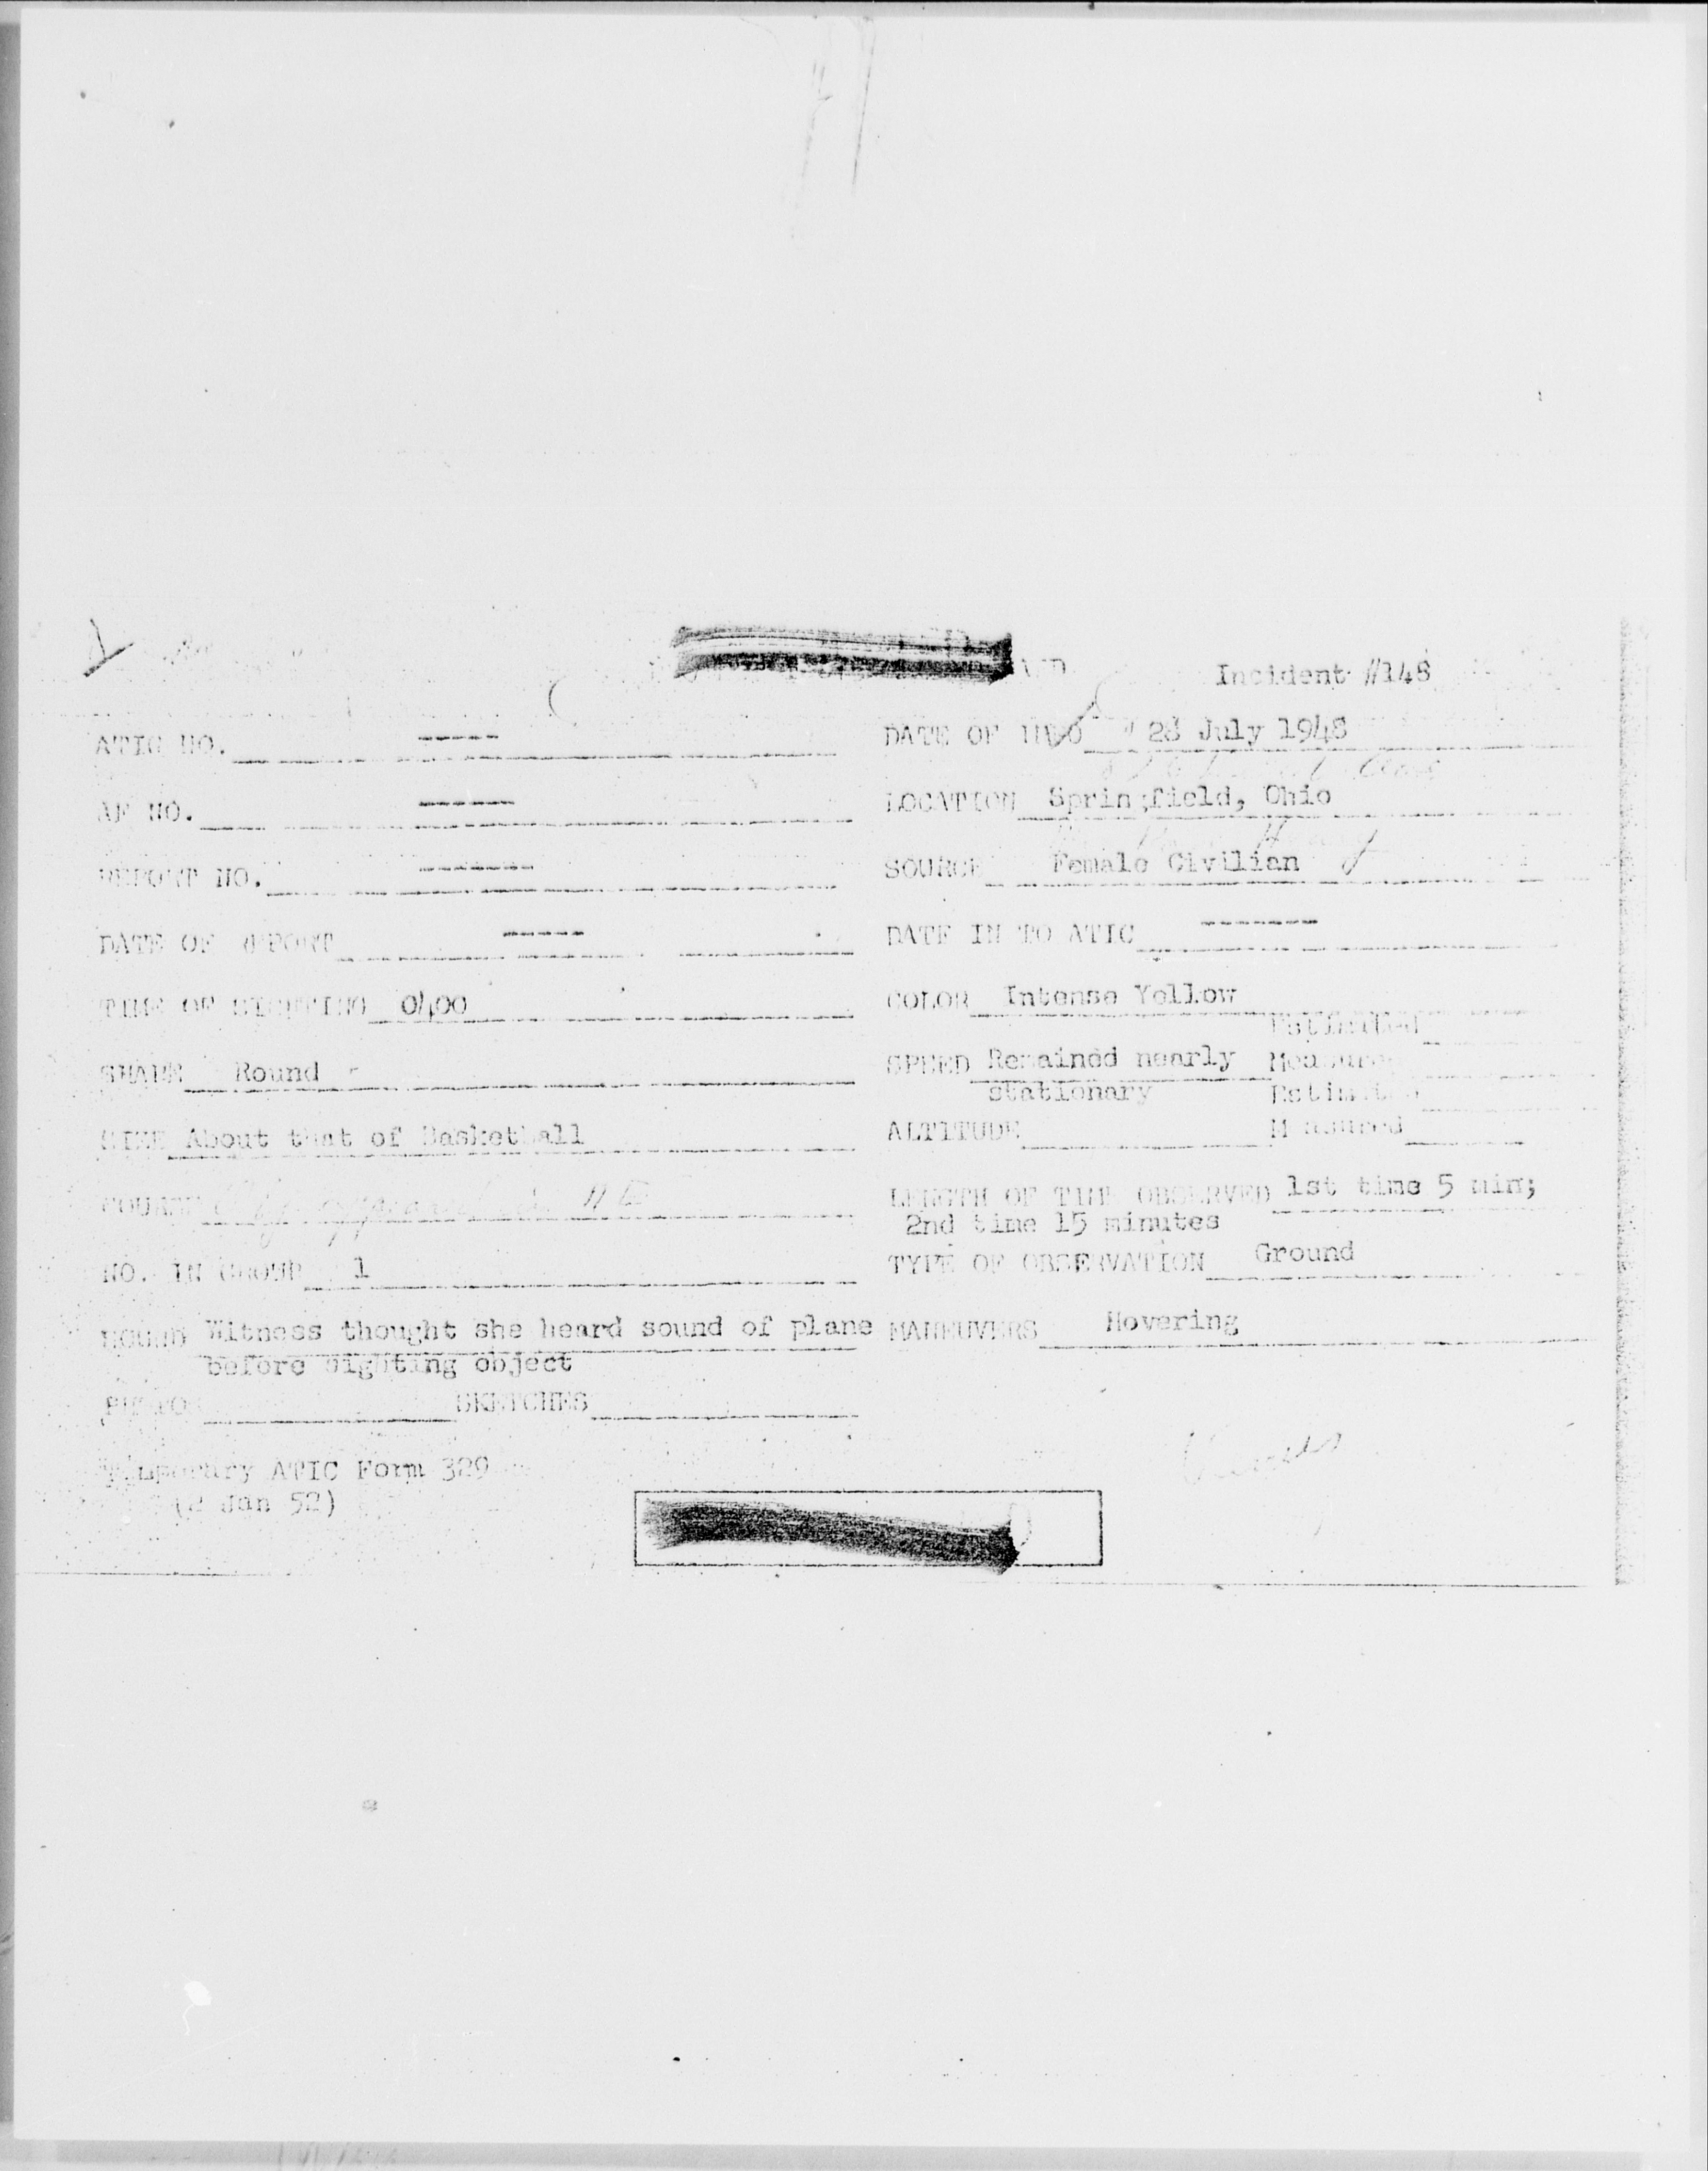 Incident #148
ATIC NO. -----
DATE OF INFO 28 July 1948
AF NO. ------
LOCATION Springfield, Ohio
REPORT NO. -------
SOURCE Female Civilian
DATE OF REPORT -----
DATE IN TO ATIC -------
TIME OF SIGHTING 0400
COLOR Intense Yellow
Estimated
SHAPE Round
SPEED Remained nearly Measured
stationary Estimated
SIZE About that of Basketball
ALTITUDE Measured
COURSE NE
LENGTH OF TIME OBSERVED 1st time 5 min;
2nd time 15 minutes
NO. IN GROUP 1
TYPE OF OBSERVATION Ground
SOUND Witness thought she heard sound of plane
before sighting object
MANEUVERS Hovering
PHOTO SKETCHES
Temporary ATIC Form 329
(2 Jan 52)
Venus